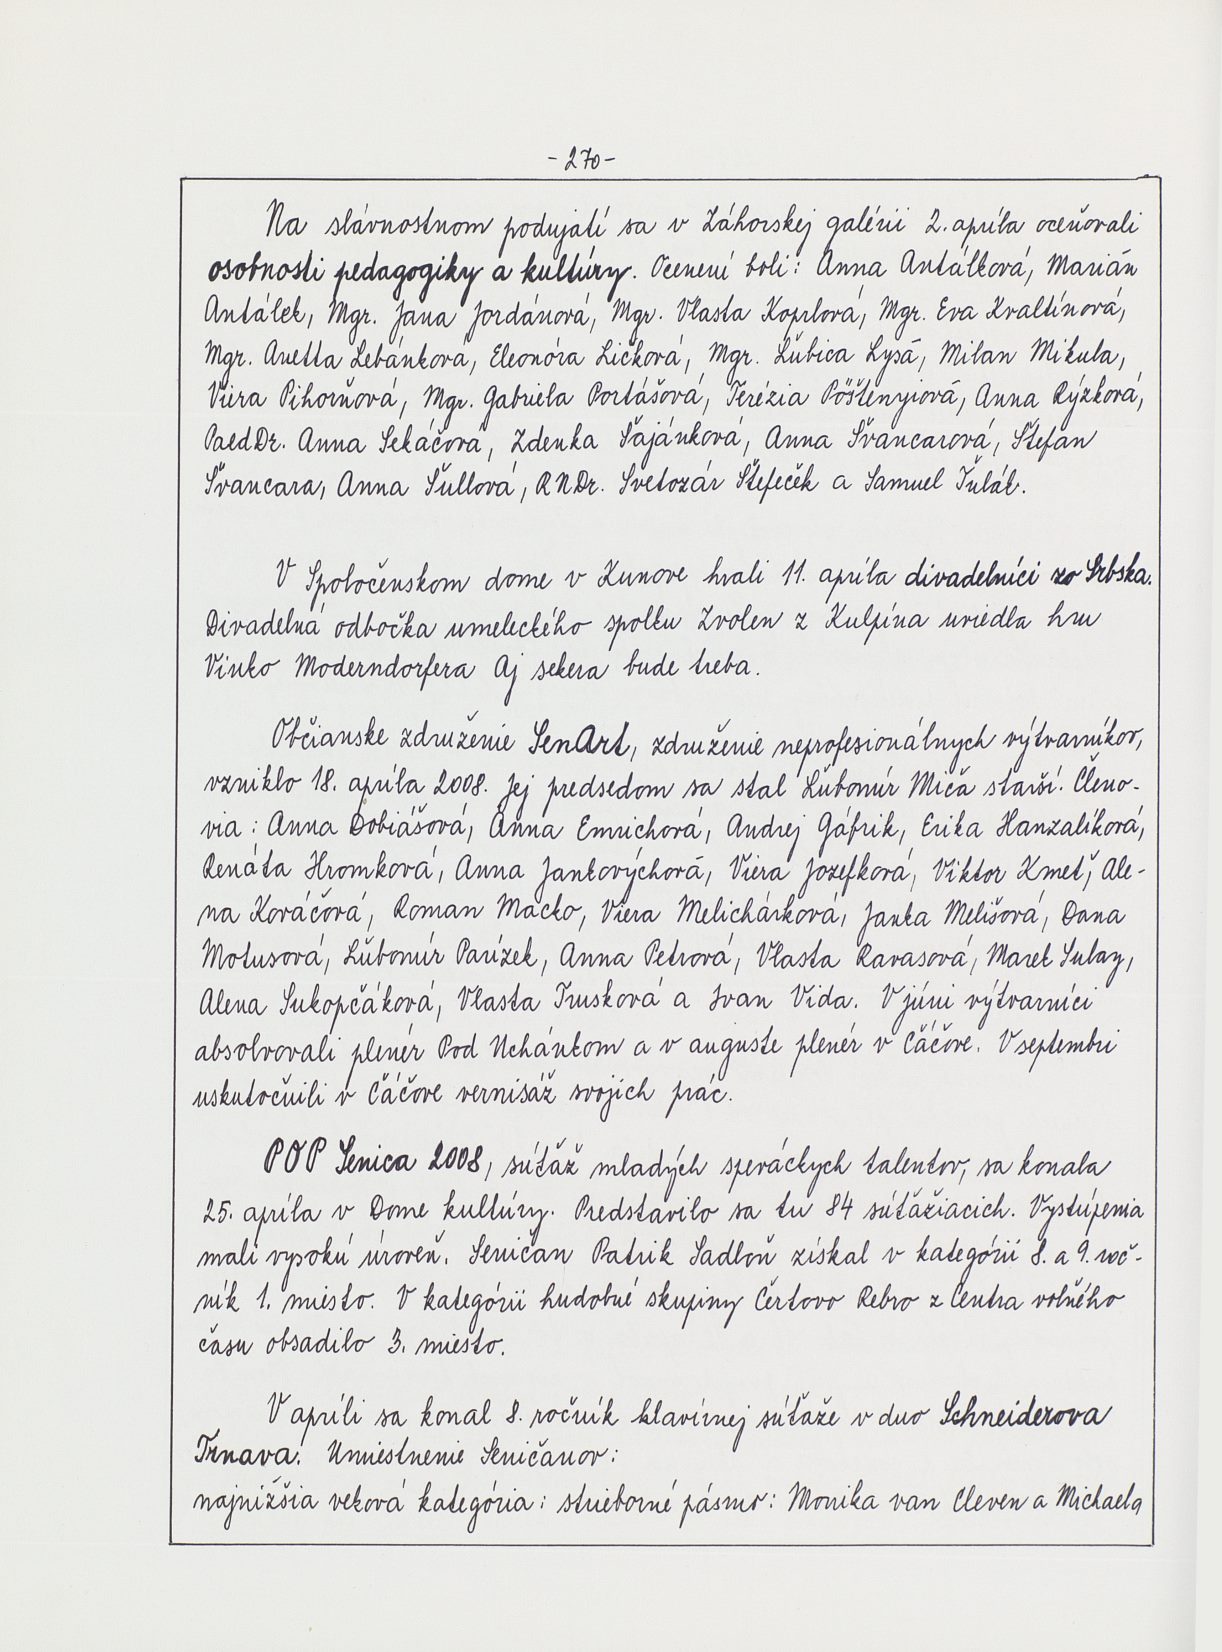 - 270 -
Na slávnostnom podujatí sa v Záhorskej galérii 2. apríla oceňovali
osobnosti pedagogiky a kultúry. Ocenení boli: Anna Antálková, Marián
Antálek, Mgr. Jana Jordánová, Mgr. Vlasta Koprlová, Mgr. Eva Kvaltínová,
Mgr. Anetta Lebánková, Eleonóra Ličková, Mgr. Ľubica Lysá, Milan Mikula,
Viera Pihorňová, Mgr. Gabriela Portášová, Terézia Pöštenyiová, Anna Rýzková,
PaedDr. Anna Sekáčová, Zdenka Šajánková, Anna Švancarová, Štefan
Švancara, Anna Šullová, RNDr. Svetozár Štefeček a Samuel Ťulák.
V Spoločenskom dome v Kunove hrali 11. apríla divadelníci zo Srbska.
Divadelná odbočka umeleckého spolku Zvolen z Kulpína uviedla hru
Vinko Moderndorfera Aj sekera bude treba.
Občianske združenie SenArt, združenie neprofesionálnych výtvarníkov,
vzniklo 18. apríla 2008. Jej predsedom sa stal Ľubomír Miča starší. Členo-
via: Anna Dobiášová, Anna Emrichová, Andrej Gáfrik, Erika Hanzalíková,
Renáta Hromková, Anna Jankovýchová, Viera Jozefková, Viktor Kmeť, Ale-
na Kováčová, Roman Macko, Viera Melichárková, Janka Melišová, Dana
Motusová, Ľubomír Parízek, Anna Petrová, Vlasta Ravasová, Marek Sulay,
Alena Sukopčáková, Vlasta Trusková a Ivan Vida. V júni výtvarníci
absolvovali plenér Pod Uchánkom a v auguste plenér v Čáčove. V septembri
uskutočnili v Čáčove vernisáž svojich prác.
POP Senica 2008, súťaž mladých speváckych talentov, sa konala
25. apríla v Dome kultúry. Predstavilo sa tu 84 súťažiacich. Vystúpenia
mali vysokú úroveň. Seničan Patrik Sadloň získal v kategórii 8. a 9. roč-
ník 1. miesto. V kategórii hudobné skupiny Čertovo Rebro z Centra voľného
času obsadilo 3. miesto.
V apríli sa konal 8. ročník klavírnej súťaže v duo Schneiderova
Trnava. Umiestnenie Seničanov:
najnižšia veková kategória: strieborné pásmo: Monika van Cleven a Michaela